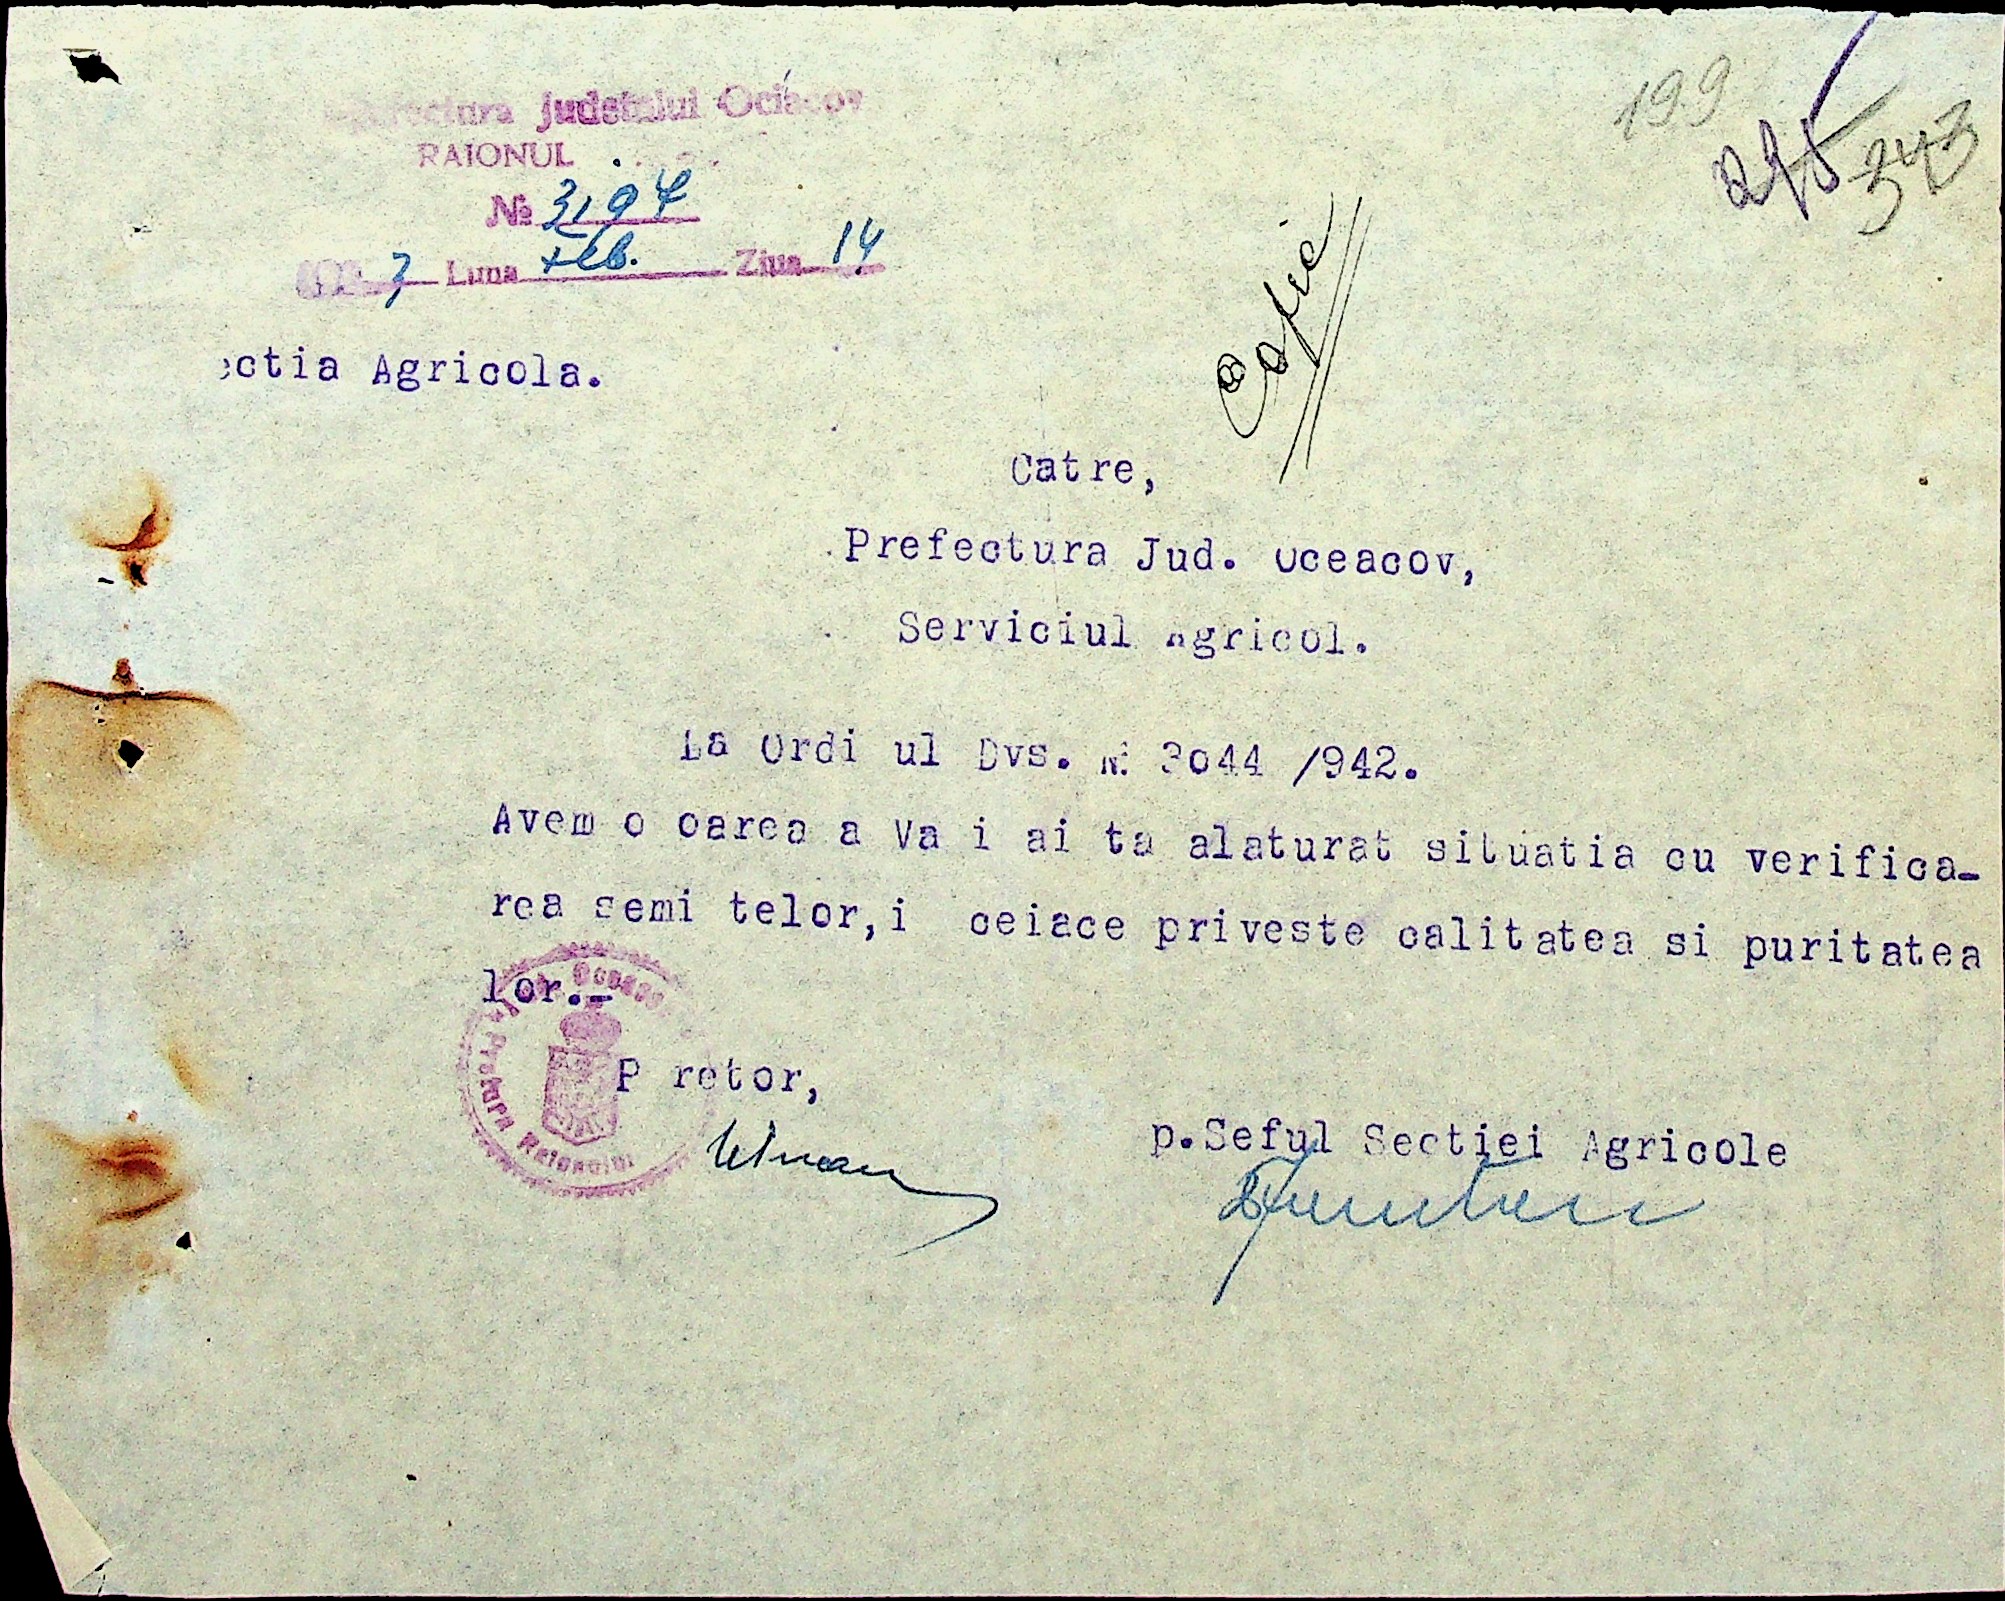 199
343
judetului Ociacov
RAIONUL
№ 3197
3 Luna Feb. Ziua 14
Copie
ectia Agricola.
Catre,
Prefectura Jud. Oceacov,
Serviciul Agricol.
La Ordi ul Dvs. № 3044 /942.
Avem o oarea a Va i ai ta alaturat situatia cu verifica-
rea semi telor,i ceiace priveste calitatea si puritatea
lor.-
Pretura Raionului
P retor,
p.Seful Sectiei Agricole